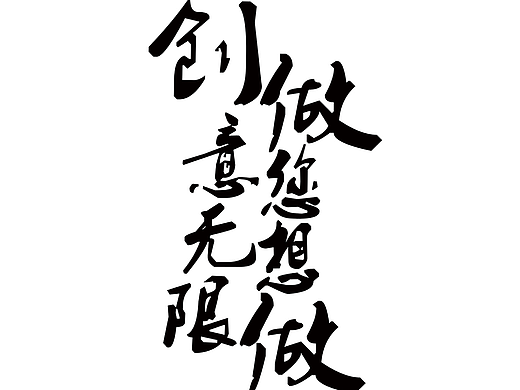 做您想做
创意无限